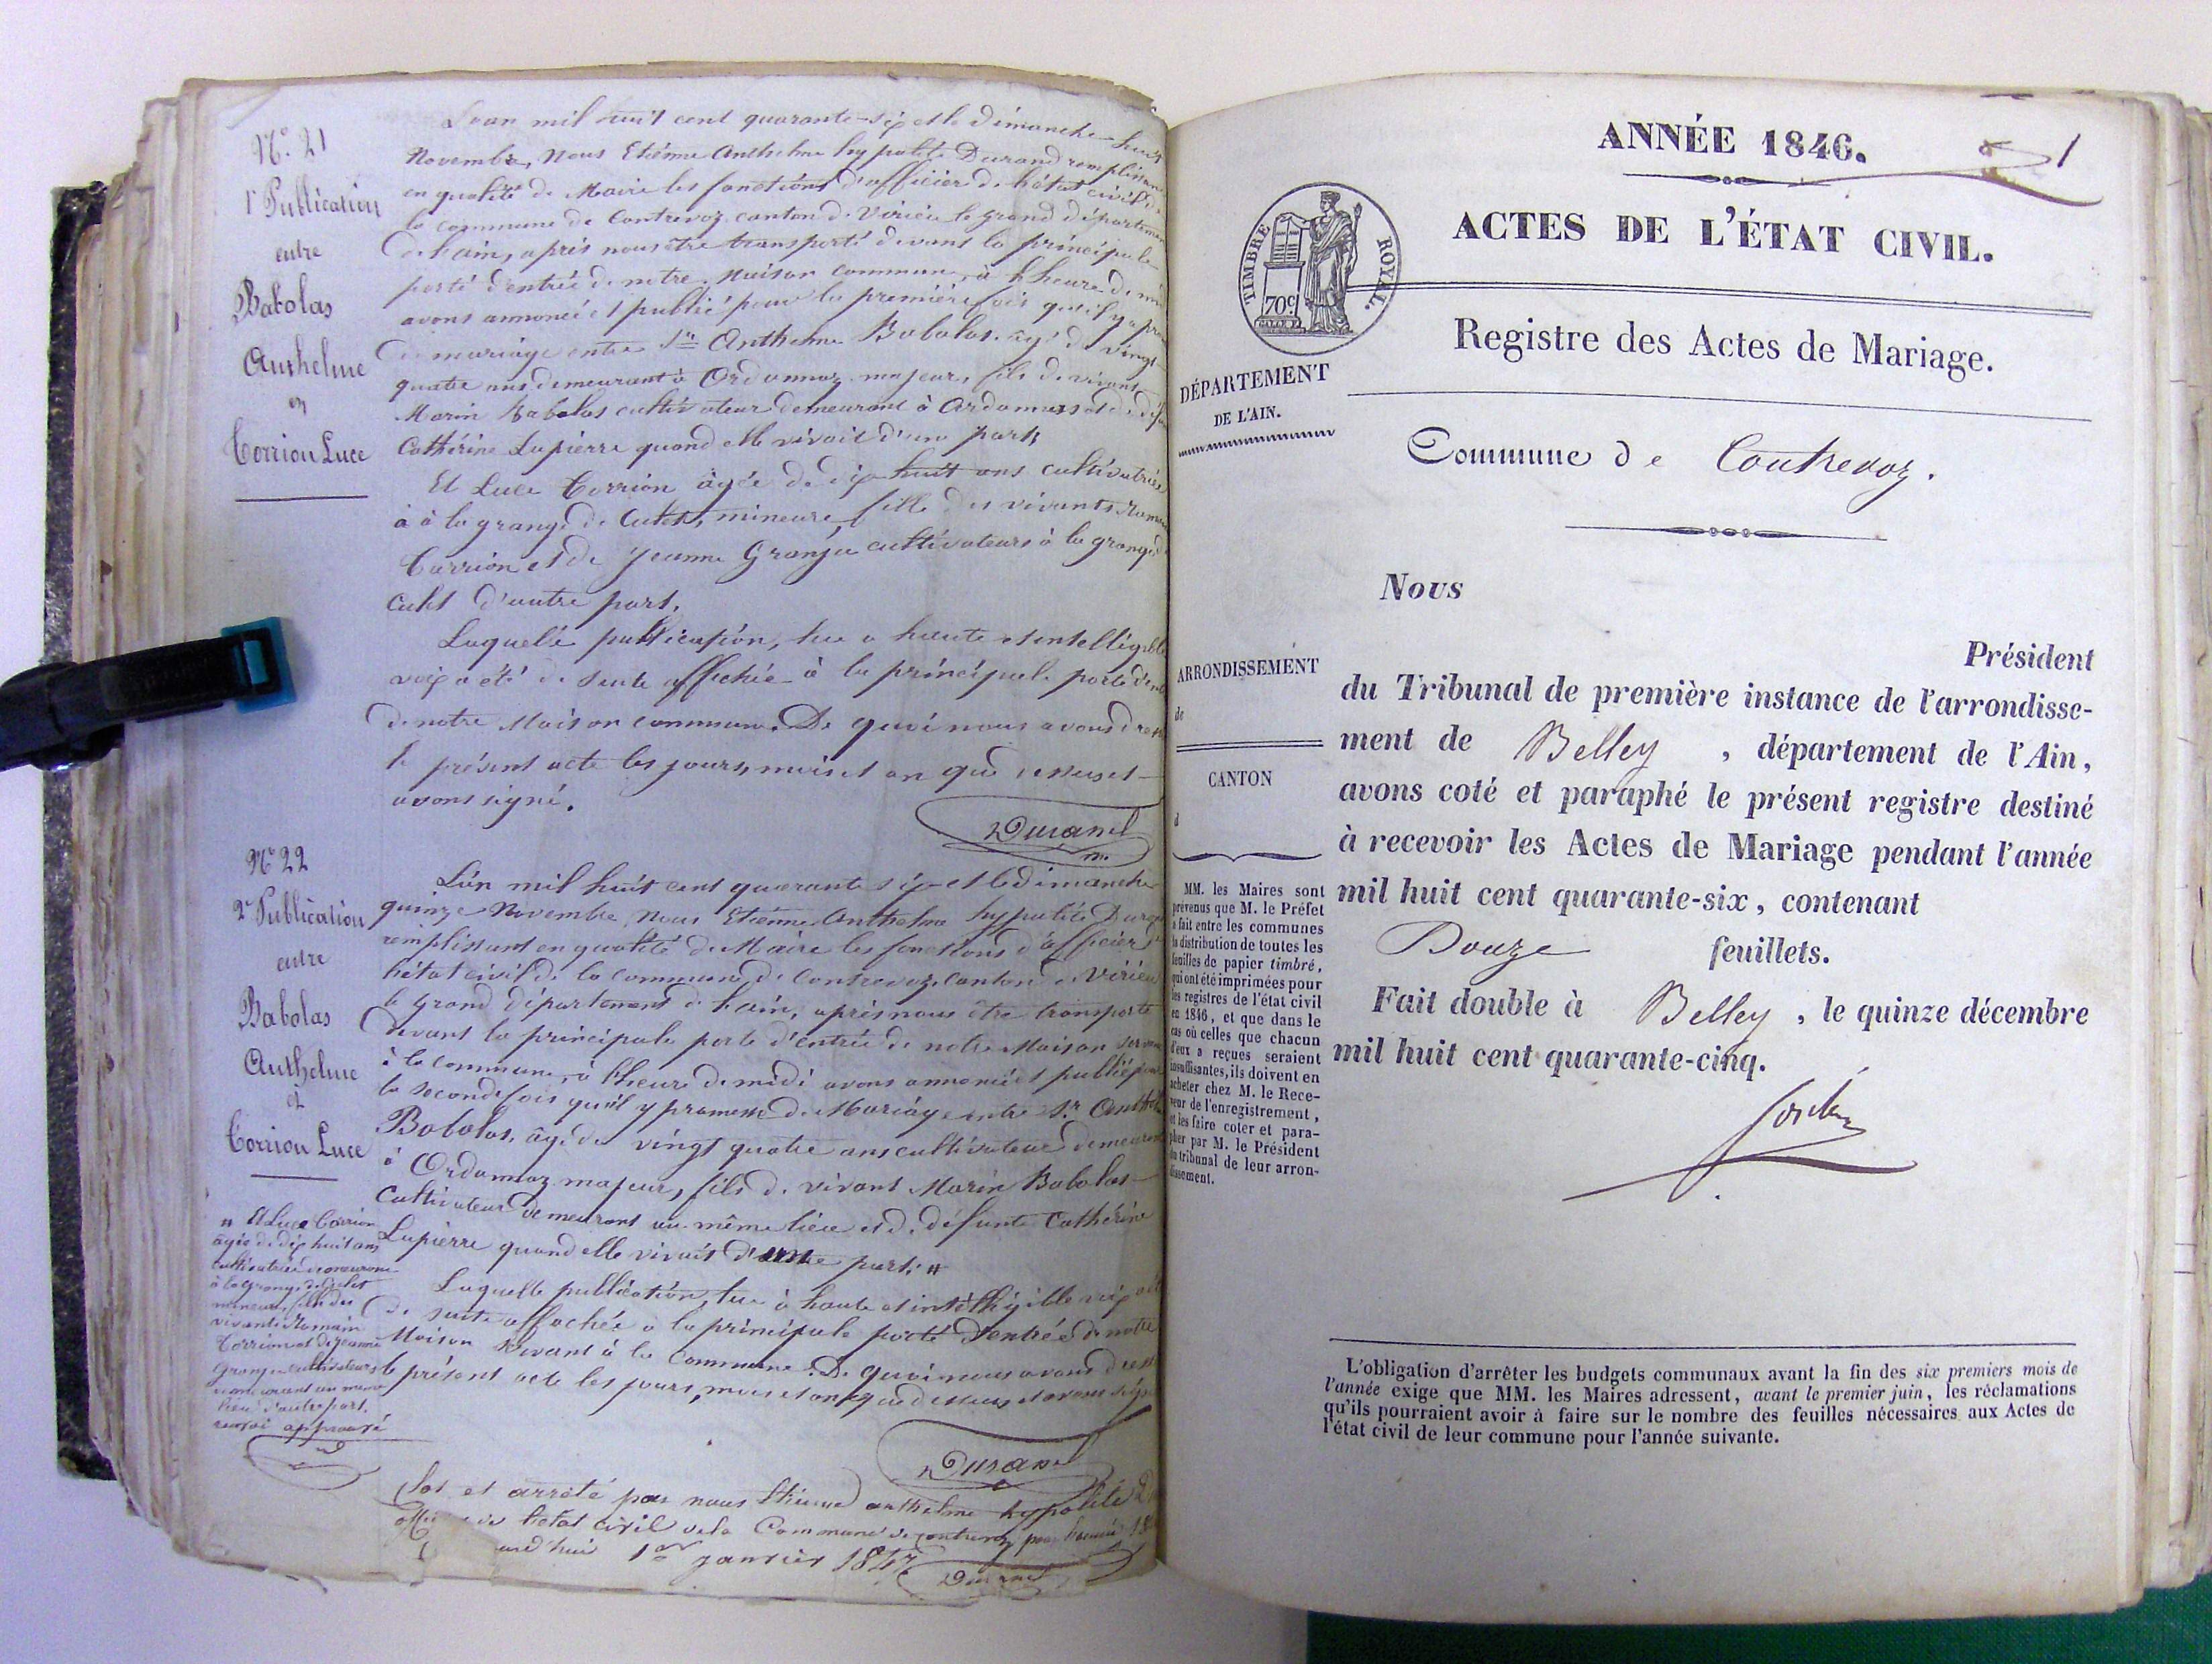 N.° 21
1.e Publication
entre
Babolas
Anthelme
et
Corrion Luce
L'an mil huit cent quarante-six et le dimanche huit
Novembre, Nous Etiénne Anthelme hypolite Durand remplissant
en qualité de Maire les fonctions d'officier de l'état civil de
la commune de Contrevoz canton de Virieu le grand département
de l'ain, après nous être transporté devant la principale
porte d'entrée de notre Maison commune, à l'heure de midi
avons annoncé et publié pour la première fois qu'il y a
de mariage entre Sr. Anthelme Babolas, âgé de vingt
quatre ans demeurant à Ordonnaz majeur, fils de vivant
Marin Babolas cultivateur demeurant à Ordonnaz et de
Cathérine Lapierre quand elle vivait d'une part;
Et Luce Corrion âgée de dix huit ans cultivatrice
à la grange de Cutet, mineure, fille des vivants
Corrion et de Jeanne Granja cultivateurs à la grange
d'autre part.
Laquelle publication, lue à haute et intelligible
voix a été de suite affichée à la principale porte
de notre Maison commune. De quoi nous avons
le présent acte les jours, mois et an que dessus et
avons signé.
Durand
N.° 22
2.e Publication
entre
Babolas
Anthelme
et
Corrion Luce
L'an mil huit cent quarante six et le dimanche
quinze Novembre, Nous Etiénne Anthelme hypolite Durand
remplissant en qualité de Maire les fonctions d'officier de
l'état civil de la commune de Contrevoz, canton de Virieu
le grand département de l'ain, après nous être transporté
devant la principale porte d'entrée de notre Maison
à la commune, à l'heure de midi avons annoncé et publié pour
la seconde fois qu'il y promesse de Mariage entre Sr. Anthelme
Babolas, âgé de vingt quatre ans cultivateur demeurant
à Ordonnaz majeur, fils de vivant Marin Babolas
Cultivateur demeurant au même lieu et de défunte Cathérine
Lapierre quand elle vivait d'une part; #
# Et Luce Corrion
âgée de dix huit ans
cultivatrice demeurant
à la grange de Cutet
mineure, fille des
vivants Romain
Corrion et de Jeanne
Granja cultivateurs
demeurant au même
lieu, d'autre part.
renvoi approuvé
Laquelle publication, lue à haute et intelligible voix
de suite affichée à la principale porte d'entrée de notre
Maison servant à la commune. De quoi nous avons
le présent acte les jours, mois et an que dessus, et avons signé
Durand
Clos et arrêté par nous Etienne anthelme hypolite
de l'etat civil de la Commune de Contrevoz pour l'année
1er janvier 1847
Durand
ANNÉE 1846.
1
ACTES DE L'ÉTAT CIVIL.
TIMBRE ROYAL.
70c
Registre des Actes de Mariage.
DÉPARTEMENT
DE L'AIN.
Commune de Contrevoz.
Nous
Président
ARRONDISSEMENT
de
CANTON
d
du Tribunal de première instance de l'arrondisse-
ment de Belley , département de l'Ain,
avons coté et paraphé le présent registre destiné
à recevoir les Actes de Mariage pendant l'année
mil huit cent quarante-six, contenant
Douze feuillets.
Fait double à Belley , le quinze décembre
mil huit cent quarante-cinq.
MM. les Maires sont
prévenus que M. le Préfet
a fait entre les communes
la distribution de toutes les
feuilles de papier timbré,
qui ont été imprimées pour
les registres de l'état civil
en 1846, et que dans le
cas où celles que chacun
d'eux a reçues seraient
insuffisantes, ils doivent en
acheter chez M. le Rece-
veur de l'enregistrement,
et les faire coter et para-
pher par M. le Président
du tribunal de leur arron-
dissement.
L'obligation d'arrêter les budgets communaux avant la fin des six premiers mois de
l'année exige que MM. les Maires adressent, avant le premier juin, les réclamations
qu'ils pourraient avoir à faire sur le nombre des feuilles nécessaires aux Actes de
l'état civil de leur commune pour l'année suivante.